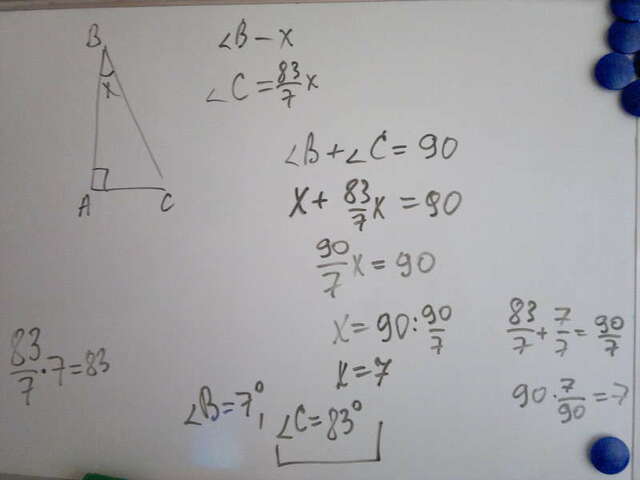 B
x
A
C
∠B - x
∠C = 83/7 x
∠B + ∠C = 90
x + 83/7 x = 90
90/7 x = 90
x = 90 : 90/7
x = 7
∠B = 7°, ∠C = 83°
83/7 · 7 = 83
83/7 + 7/7 = 90/7
90 · 7/90 = 7